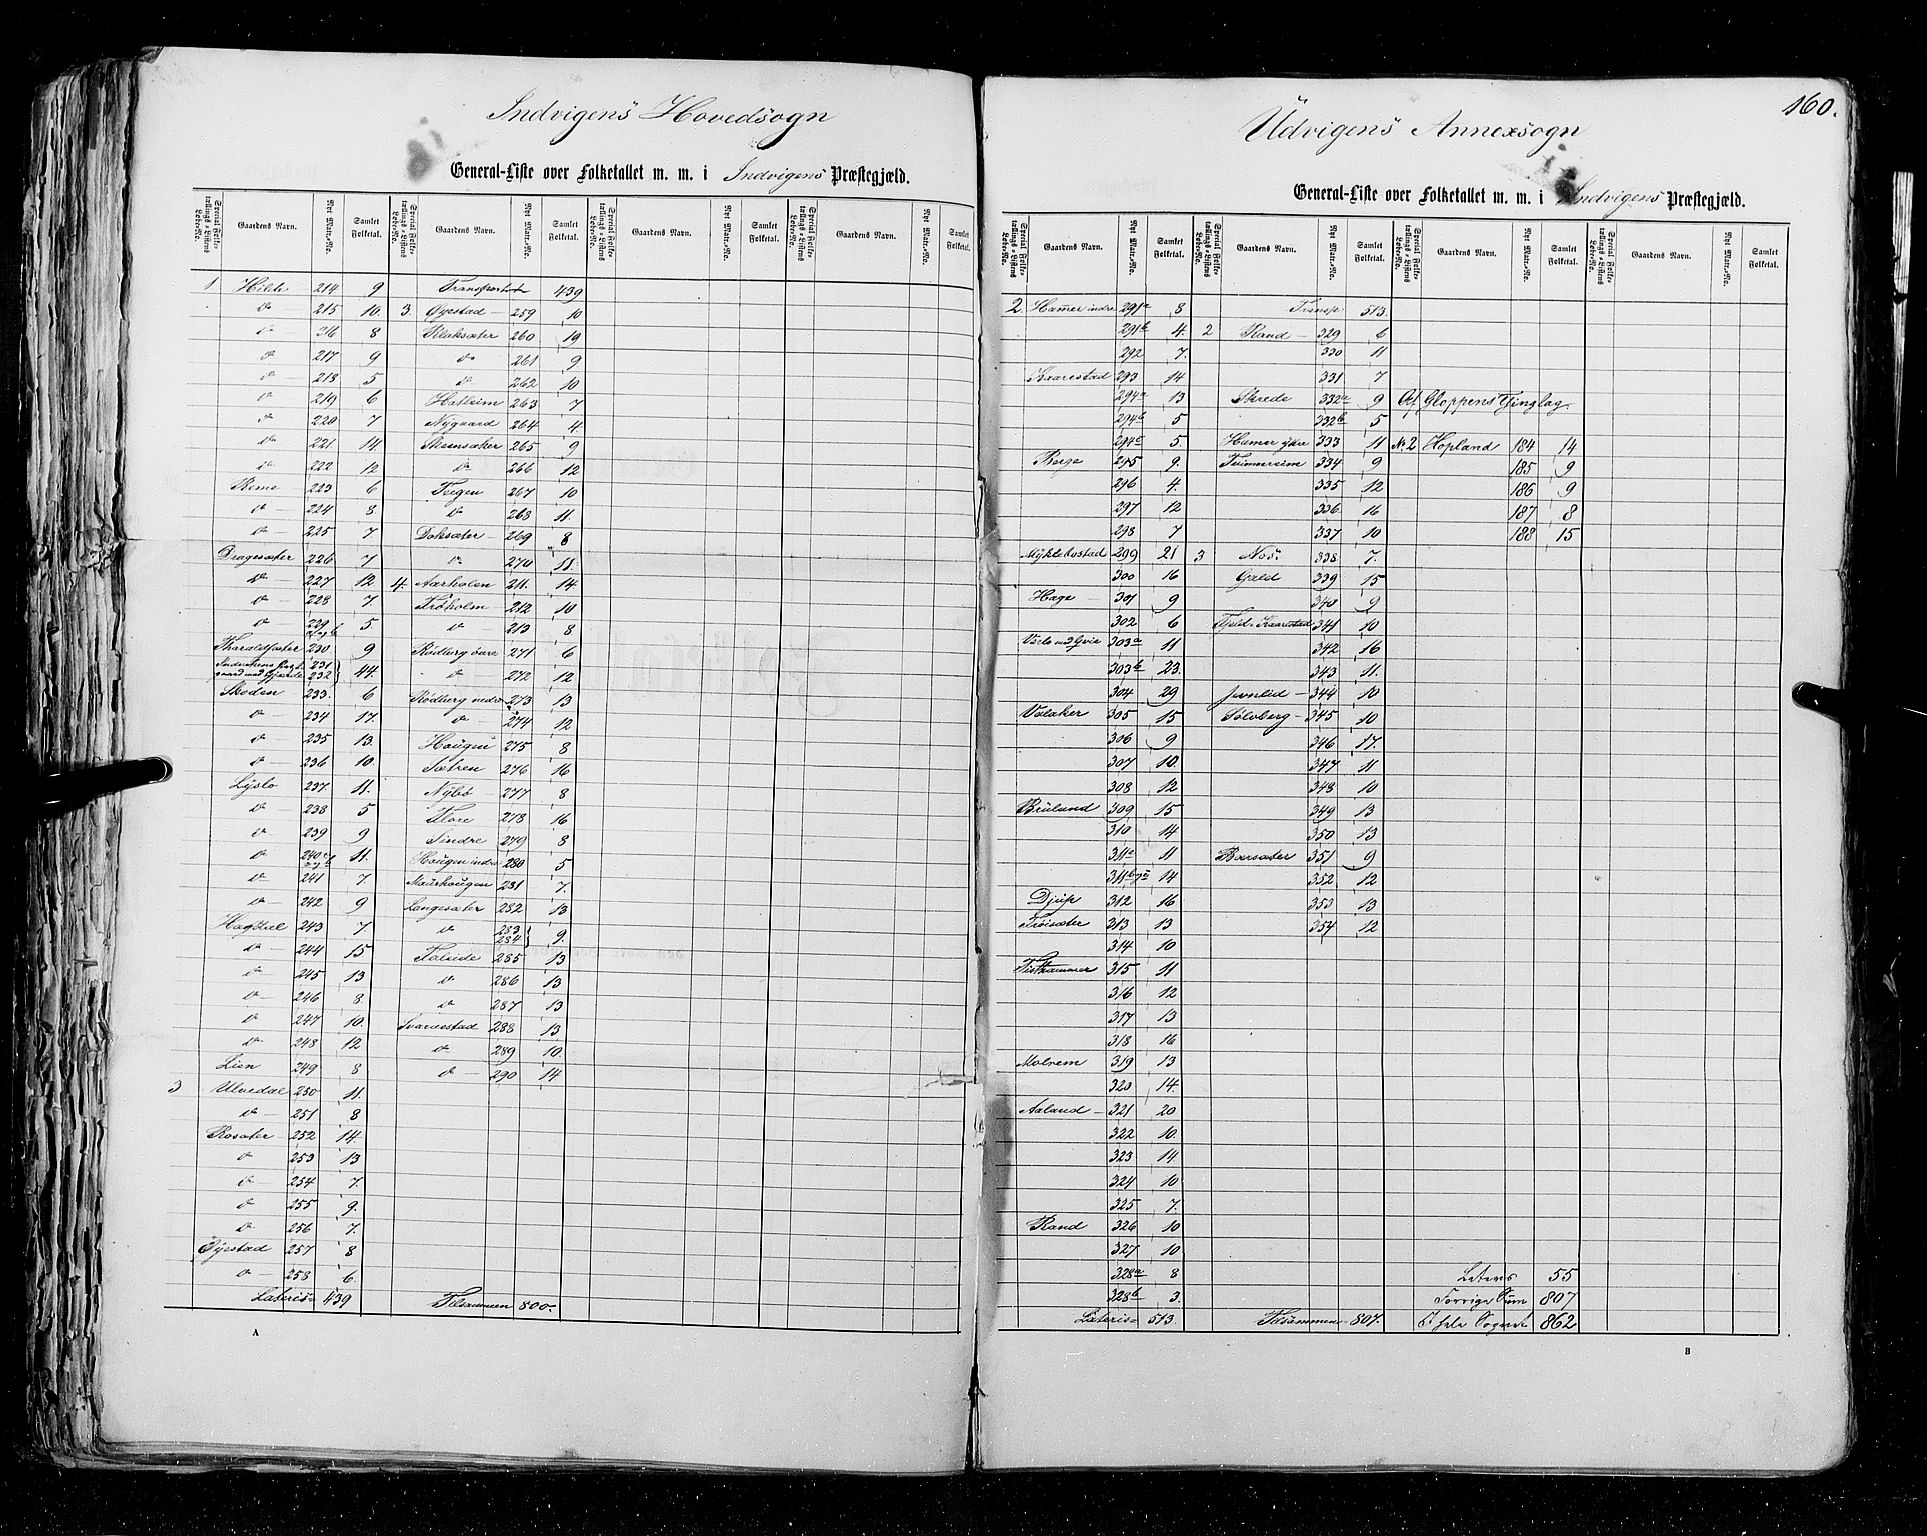 160.
Indvigens Hovedsogn
General-Liste over Folketallet m. m. i Indvigens Præstegjæld.
Special Folketællings-Listens Løbe-No. Gaardens Navn. Nyt Matr.-No. Samlet Folketal. Special Folketællings-Listens Løbe-No. Gaardens Navn. Nyt Matr.-No. Samlet Folketal. Special Folketællings-Listens Løbe-No. Gaardens Navn. Nyt Matr.-No. Samlet Folketal. Special Folketællings-Listens Løbe-No. Gaardens Navn. Nyt Matr.-No. Samlet Folketal.
1 Hilde 214 9 Transport 439
215 10. 3. Øyestad 259 10
216 8 260 19
217 9 261 9
218 5 262 10
219 6 Hatleim 263 7
220 7 Nygaard 264 4.
221 14. 265 9
222 12 266 12
Reme 223 6 Teigen 267 10
224 8. 268 11.
225 7 Doksæter 269 8
Dragesæter 226 7 270 11.
227 12 4. Aarholen 211. 14.
228 7. Frøholm 212 10
229 5 213 8
230 9 Rødberg øvre 271 6
231 232 44. 272 12
Skoden 233. 6 Rødberg nedre 273 13
234 17. 274 12
235 13. Hougen 275 8
236 10. Sætren 276 16
Lyslo 237. 11. Nybø 277 8
238 5 Flore 278 16
239 9 Sindre 279 8
240 11. Hougen indre 280 5
241 7. Maurhougen 281 7.
242 9 Langesæter 282 13
243 7. 283 284 9.
244 15 Faleide 285 13
245 13 286 13
246 8. 287 13
247 10. Svarvestad 288 13
248 12 289 10.
Lien 249 8 290 14
3 Ulvedal 250 11.
251 8
Rosæter 252 14.
253 13
254 7.
255 9.
256 7.
Øyestad 257 8
258 6.
Lateris 439 Tilsammen 800.
A
Udvigens Annexsogn
General-Liste over Folketallet m. m. i Indvigens Præstegjæld.
Special Folketællings-Listens Løbe-No. Gaardens Navn. Nyt Matr.-No. Samlet Folketal. Special Folketællings-Listens Løbe-No. Gaardens Navn. Nyt Matr.-No. Samlet Folketal. Special Folketællings-Listens Løbe-No. Gaardens Navn. Nyt Matr.-No. Samlet Folketal. Special Folketællings-Listens Løbe-No. Gaardens Navn. Nyt Matr.-No. Samlet Folketal.
2. Hamer indre 291a 8 Transp. 513.
291b 4. 2 Rand 329 6
292 7. 330 11
Kaarestad 293 14 331 7
294a 13 Skrede 332a 9 Af Gloppens Tinglag.
294b 5 332b 5
294c 5. Hamer ydre 333 11 No. 2 Hopland 184 14
Berge 295 9. Tvinnereim 334 9 185 9
296 4. 335 12 186 9
297 12 336 16 187 8
298 7 337 10 188 15
Myklebostad 299 21 3 Nos. 338 7.
300 16 Gjeld 339 15
Hage 301 9 340 9
302 6 Kaarestad 341 10
303a 11 342 16
303b 23. 343 11.
304 29 344 10
Valaker 305 15 Sølvberg 345 10
306 9 346 17.
307 10. 347 11
308 12 348 10
Bruland 309 15 349 13
310 14 350 13
311a 11 Bersæter 351 9
311b 14 352 12
Djup 312 16 353 13
Frøisæter 313 13 354 12
314 10
Tisthammer 315 11
316 12
317 13
318 16
Molrem 319 13
320 14.
Aaland 321 20
322 10.
323 14
324 10
325 7.
Rand 326 10
327 10
328a 8 Lateris 55
328b 3. Forrige Sum 807
Lateris 513. Tilsammen 807. I hele Sognet 862
B